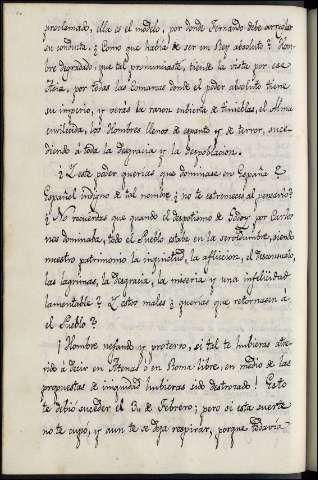 proclamado, ella es el modelo, por donde Fernando debe arreglar
su conducta. ¿Como que habia de ser un Rey absoluto? Hom-
bre degradado, que tal pronunciaste, tiende la vista por esa
Asia, por todas las comarcas donde el poder absoluto tiene
su imperio, y veras la razon cubierta de tinieblas, el Alma
envilecida, los Hombres llenos de espanto y de terror, suce-
diendo á toda la desgracia y la despoblacion.
¿Y este poder querias que dominase en España? ¿
Español indigno de tal nombre ¿no te estremeces al pensarlo?
¿No recuerdas que quando el despotismo de Godoy por Carlos
nos dominaba, todo el Pueblo estaba en la servidumbre, siendo
nuestro patrimonio la inquietud, la afliccion, el desconsuelo,
las lagrimas, la desgracia, la miseria y una infelicidad
lamentable? ¿Y estos males ¿querias que retornasen á
el Pueblo?
¡Hombre nefando y protervo, si tal te hubieras atre-
vido á decir en Atenas ó en Roma libre, en medio de las
propuestas de iniquidad hubieras sido destrozado! Esto
te debió suceder el 3,, de Febrero; pero si esta suerte
no te cupo, y aun te se deja respirar, porque todavia